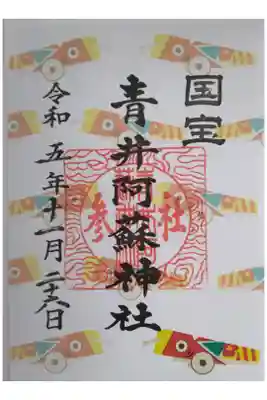 国宝
青井阿蘇神社
参社
令和五年十一月二十六日